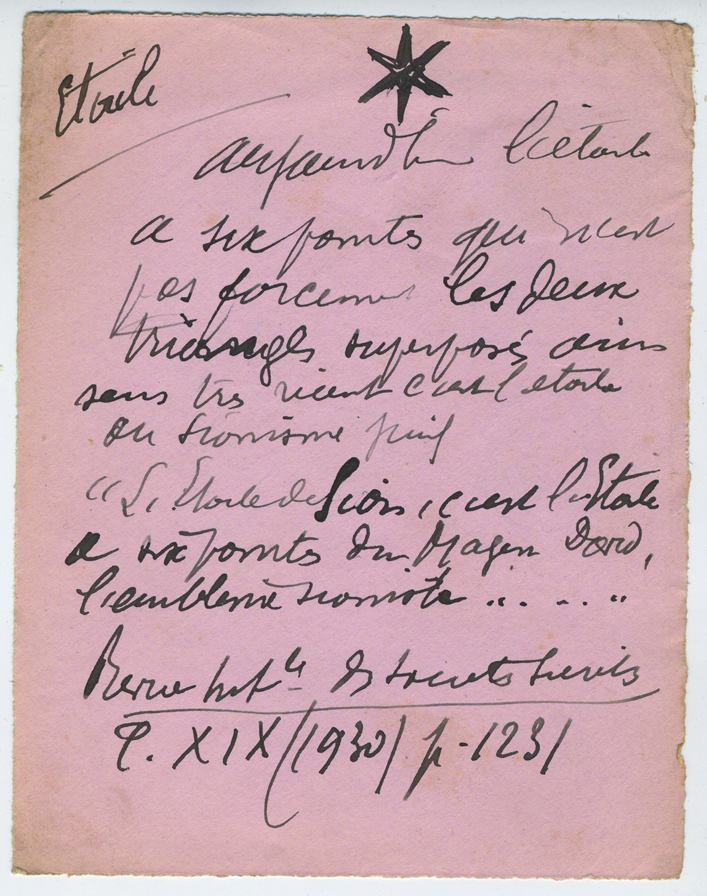 Etoile
aujourd'hui l'étoile
a six points qui n'est
pas forcement les deux
triangles superposés
sens très récent c'est l'etoile
du Sionisme juif
"L'Etoile de Sion, c'est l'Etoile
a six points du Magen David,
l'emblème sioniste ....."
Revue Intle des Societes Secretes
T. XIX (1930) p. 1231